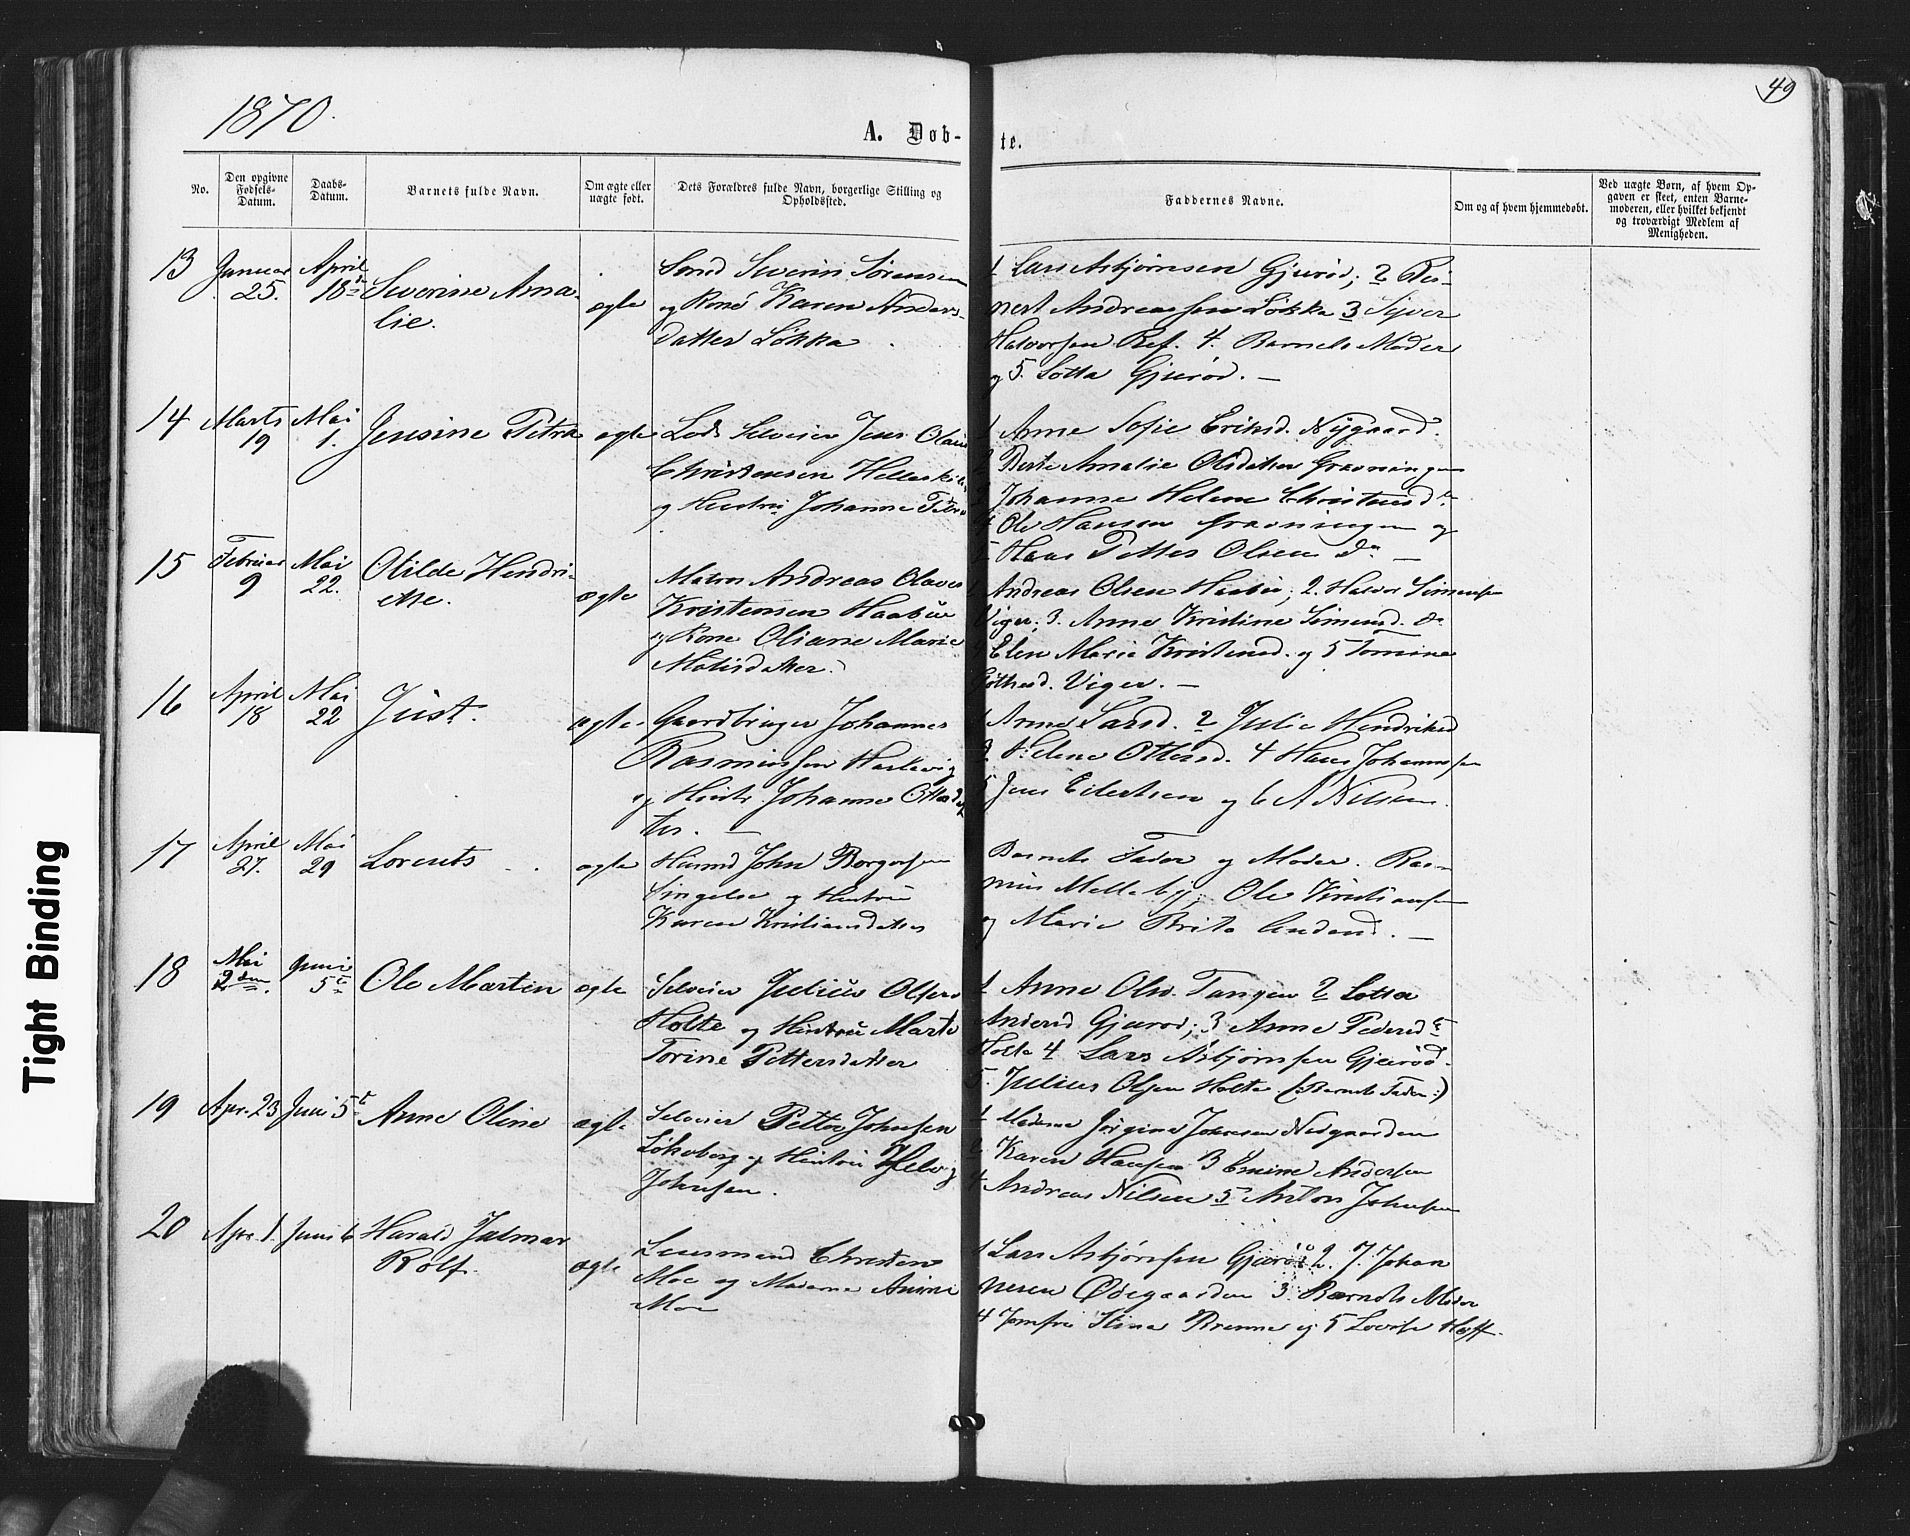 49
1870.
A. Døb-
te.
No.
Den opgivne
Fødsels-
Datum.
Daabs-
Datum.
Barnets fulde Navn.
Om ægte eller
uægte født.
Dets Forældres fulde Navn, borgerlige Stilling og
Opholdssted.
Faddernes Navne.
Om og af hvem hjemmedøbt.
Ved uægte Børn, af hvem Op-
gaven er skeet, enten Barne-
moderen, eller hvilket bekjendt
og troværdigt Medlem af
Menigheden.
13
Januar
25.
April
18de
Severine Ama-
lie.
ægte
Severin Sørensen
og Kone Karen Anders-
datter Løkka
1 Lars Asbjørnsen Gjurød; 2 Rei-
nert Andreassen Løkka 3 Syver
Halvorsen Ref. 4. Barnets Moder
og 5. Lotta Gjurød. —
14
Marts
19
Mai
1.
Jensine Petra
ægte
Lods Selveier Jens Olaus
Christensen Helleskilen
og Hustru Johanne Petra
1 Anne Sofie Eriksd. Nygaard.
2 Berte Amalie Olsdatter Gravningen
3 Johanne Helene Christensd.
4 Ole Hansen Gravningen og
5 Hans Petter Olsen do —
15
Februar
9
Mai
22.
Olilde Hendri-
ette.
ægte
Matros Andreas Olaves
Kristensen Haabu
og Kone Oliane Marie
Matisdatter.
1 Andreas Olsen Haabu; 2. Halvor Simensen
Viger; 3. Anne Kristine Simensd. do
4 Elen Marie Kristensd. og 5 Tomine
Viger. —
16
April
18
Mai
22
Just.
ægte.
Gaardbruger Johannes
Rasmussen
og Hustr. Johanne Ottersdat-
ter. —
1 Anne Larsd. 2 Julie Hendriksd
3 Helene Ottersd. 4 Hans Johannesen
5 Jens Eilertsen og 6 A Nilsen.
17
April
27.
Mai
29
Lorents
ægte
Husmd John Borgersen
Singelse og Hustru
Karen Kristiansdatter
Barnets Fader og Moder. Ras-
mus Melleby; Ole Kristiansen
og Marie Brita Andersd. —
18
Mai
2den
Juni
5te
Ole Martin
ægte
Selveier Julius Olsen
Holte og Hustru Marte
Torine Pettersdatter
1 Anne Olsd. Tangen 2 Lotta
Andersd Gjurød; 3 Anne Pedersd
Holte 4 Lars Asbjørnsen Gjurød.
5. Julius Olsen Holte (:Barnets Fader:)
19
Apr. 23
Juni 5te
Anne Oline
ægte
Selveier Petter Johnsen
Løkeberg og Hustru Helvig
Johnsen.
1 Madame Jørgine Johnsen Nedgaarden
2 Karen Hansen 3 Emine Andersen
4 Andreas Nilsen 5 Anton Johnsen
20
Apr. 1.
Juni 6
Harald Jalmar
Rolf.
ægte
Lensmand Christen
Moe og Madame Anine
Moe
1 Lars Asbjørnsen Gjurød 2. J. Johan
nesen Ødegaarden 3. Barnets Moder
4 Jomfru Stina Brenne og 5 Lovise Hoff.
Tight Binding